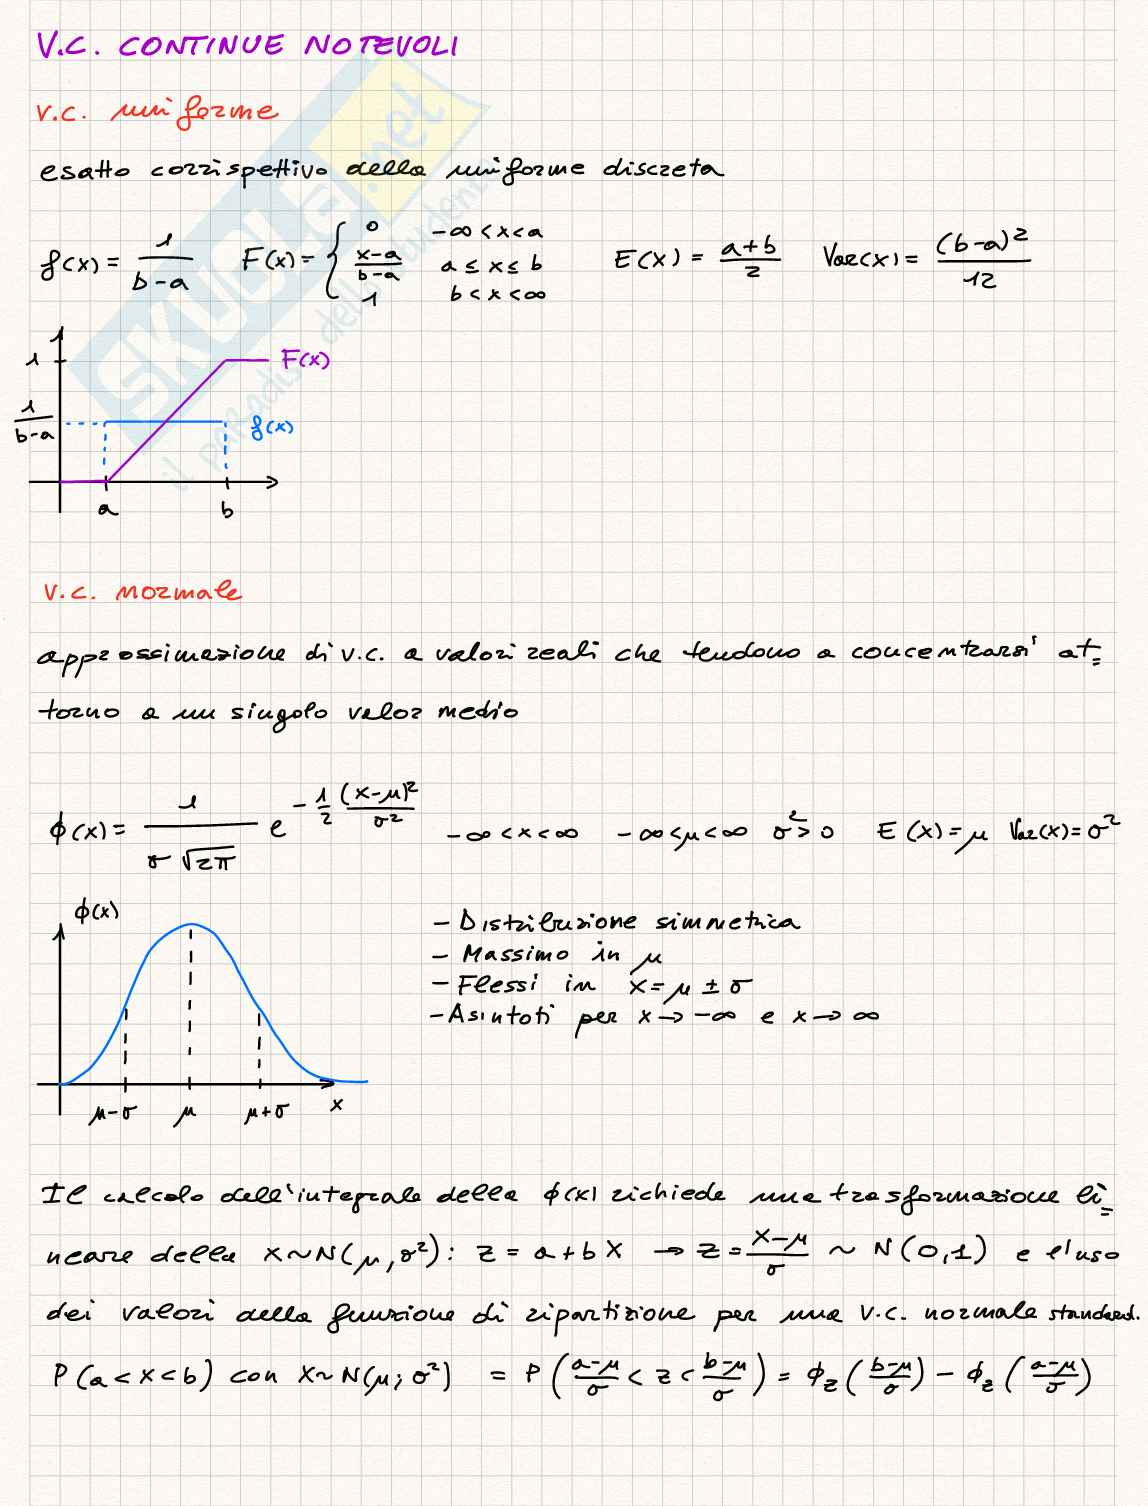 V.C. CONTINUE NOTEVOLI
v.c. uniforme
esatto corrispettivo della uniforme discreta
f(x) = 1/(b-a)   F(x) = { 0   -∞ < x < a
(x-a)/(b-a)   a ≤ x ≤ b
1   b < x < ∞
E(x) = (a+b)/2   Var(x) = (b-a)²/12
1
F(x)
1/(b-a)
f(x)
a   b
v.c. normale
approssimazione di v.c. a valori reali che tendono a concentrarsi at=
torno a un singolo valor medio
ϕ(x) = 1/(σ√2π) e^(-1/2 (x-μ)²/σ²)   -∞ < x < ∞   -∞ < μ < ∞   σ² > 0   E(x) = μ   Var(x) = σ²
ϕ(x)
μ-σ   μ   μ+σ   x
- Distribuzione simmetrica
- Massimo in μ
- Flessi in x = μ ± σ
- Asintoti per x → -∞ e x → ∞
Il calcolo dell'integrale della ϕ(x) richiede una trasformazione li=
neare della x∼N(μ, σ²): z = a + b X → z = (x-μ)/σ ∼ N(0,1) e l'uso
dei valori della funzione di ripartizione per una v.c. normale standard.
P(a < x < b) con x∼N(μ; σ²) = P((a-μ)/σ < z < (b-μ)/σ) = ϕz((b-μ)/σ) - ϕz((a-μ)/σ)
SKUOLA.net
il paradiso dello studente